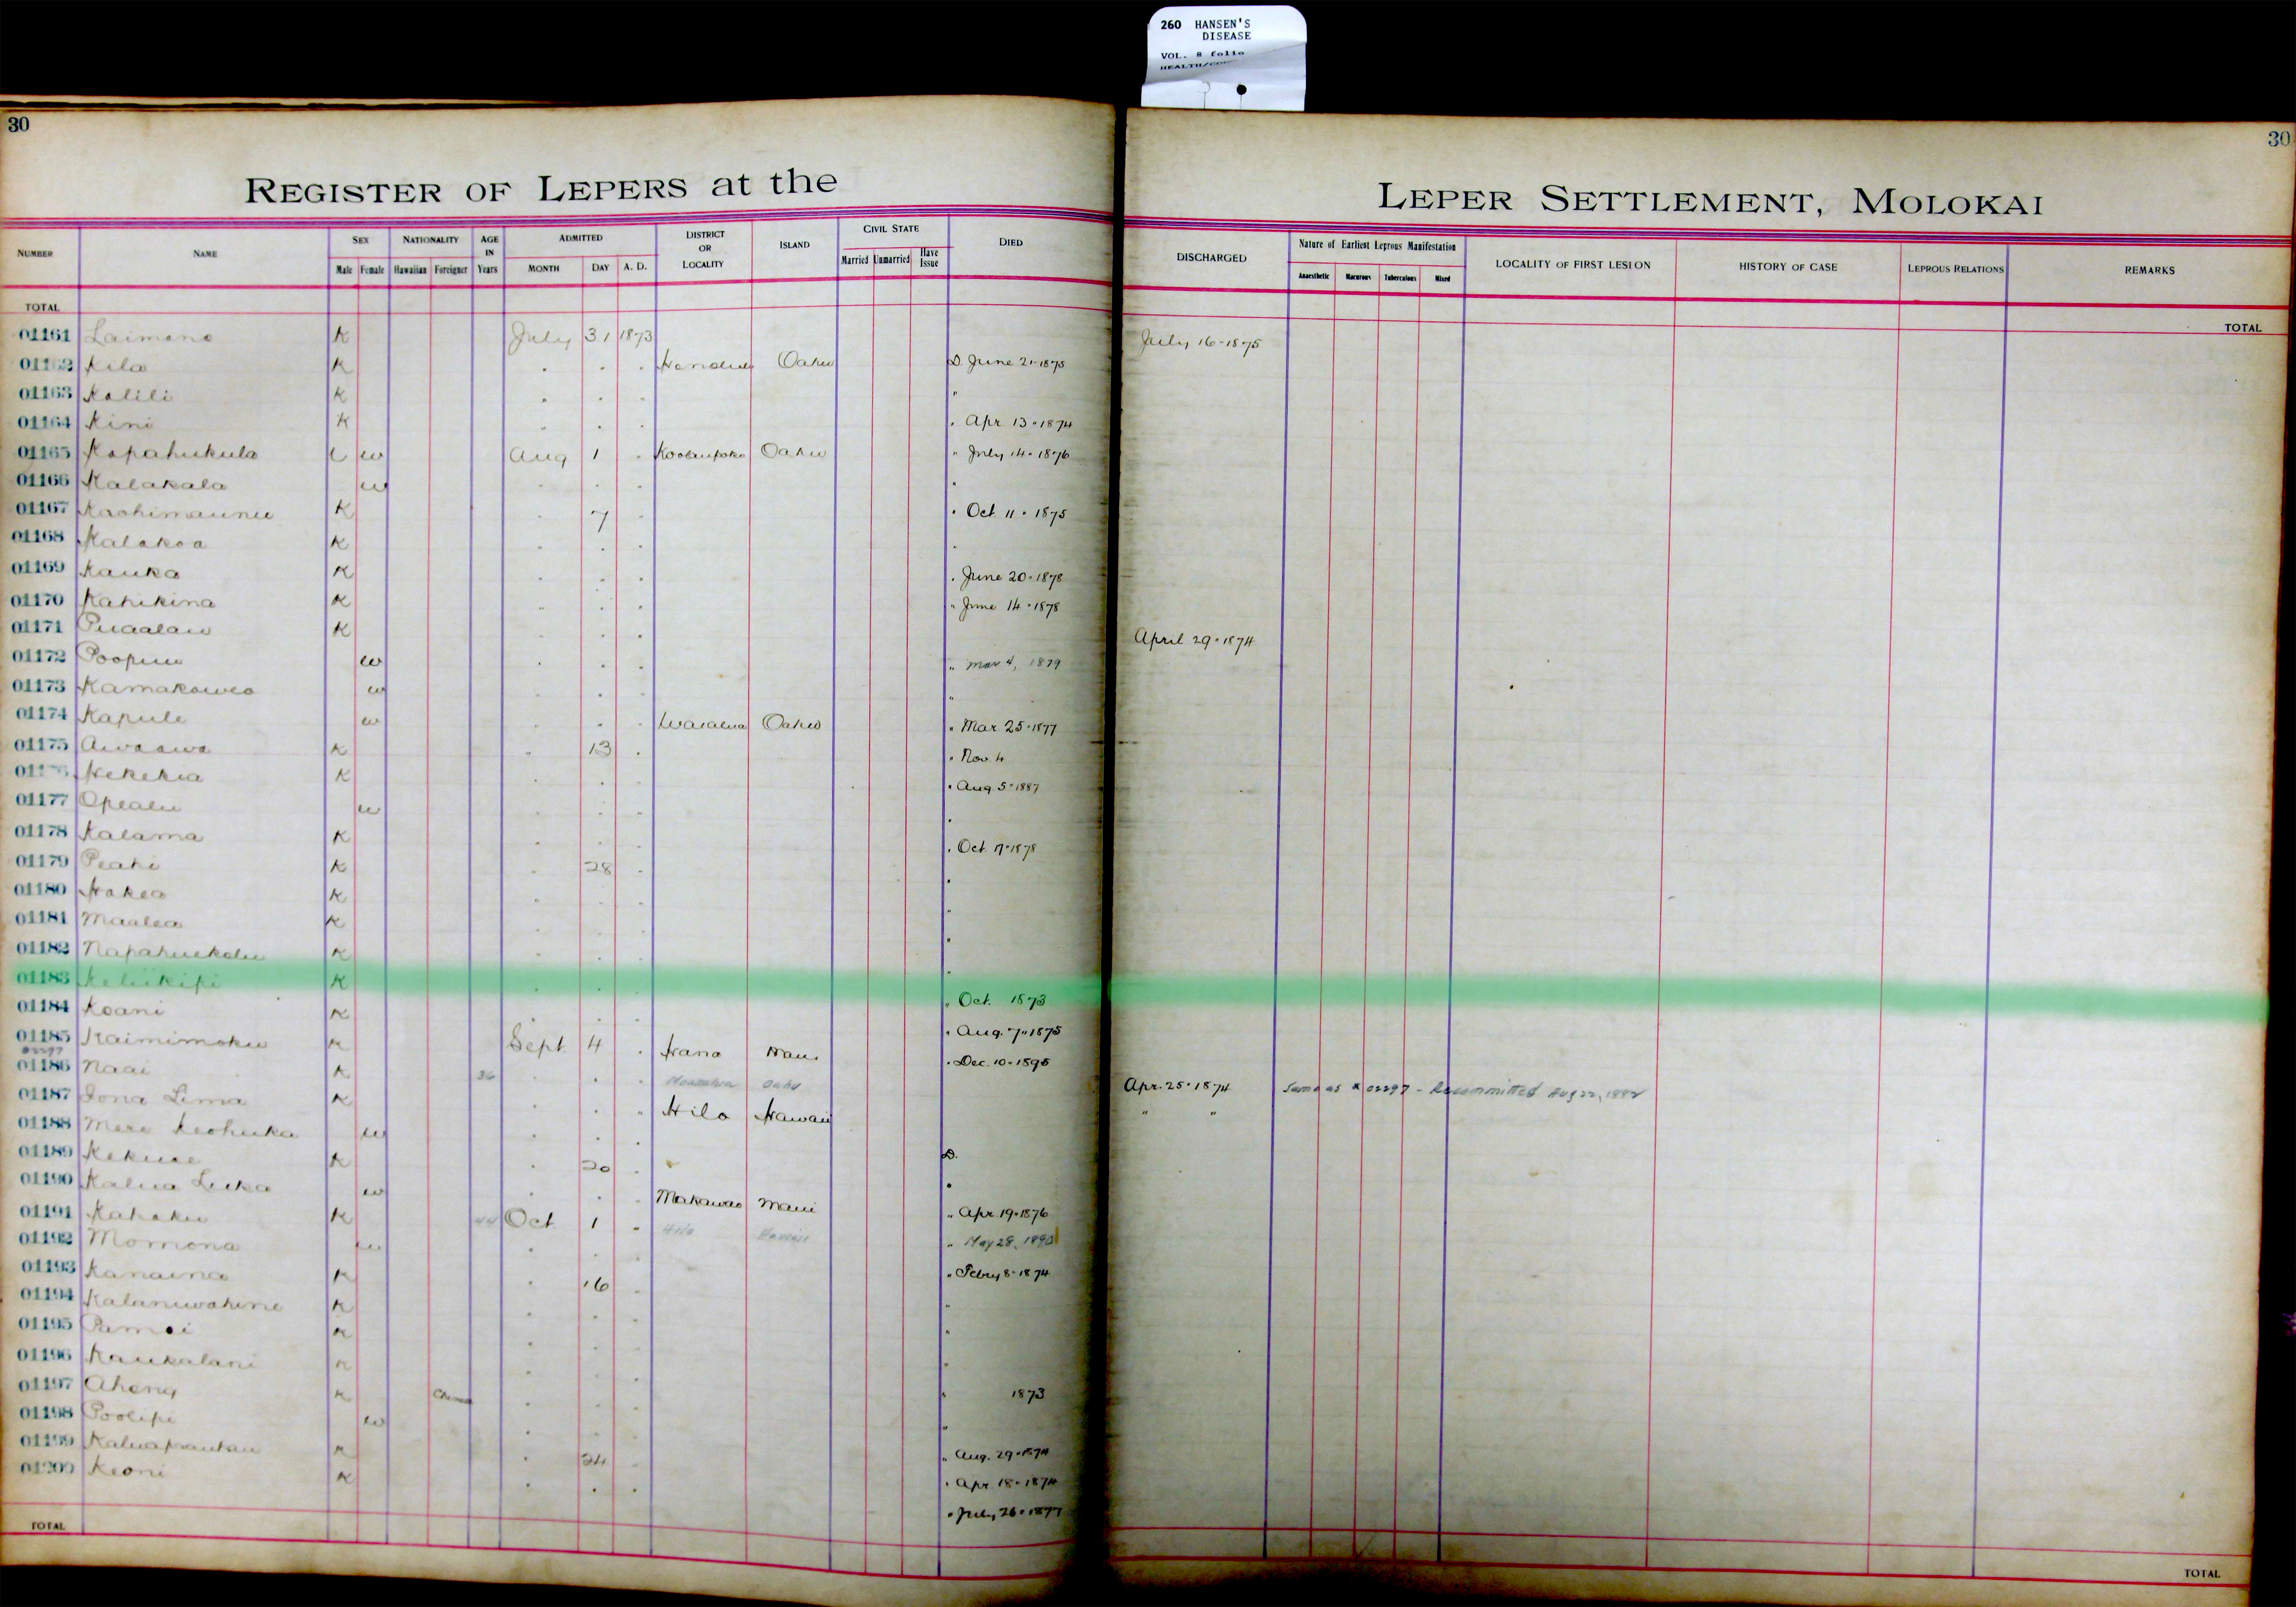 260 HANSEN'S
DISEASE
VOL. 8 folio
30
30
REGISTER OF LEPERS at the
LEPER SETTLEMENT, MOLOKAI
NUMBER NAME SEX NATIONALITY AGE IN Years ADMITTED DISTRICT OR LOCALITY ISLAND CIVIL STATE DIED
Male Female Hawaiian Foreigner MONTH DAY A. D. Married Unmarried Have Issue
DISCHARGED Nature of Earliest Leprous Manifestation LOCALITY OF FIRST LESION HISTORY OF CASE LEPROUS RELATIONS REMARKS
Anaesthetic Macurous Tuberculous Mixed
TOTAL
TOTAL
01161 Laimana K July 31 1873 July 16-1875
01162 Kila K " " " Honolulu Oahu D. June 21-1875
01163 Kalili K " " " "
01164 Kini K " " " " Apr. 13-1874
01165 Kapahukula w Aug 1 " Koolaupoko Oahu " July 14-1876
01166 Kalakala w " " " "
01167 K " 7 " " Oct. 11-1875
01168 Kalakoa K " " " "
01169 Kauka K " " " " June 20-1878
01170 Kahikina K " " " " June 14-1878
01171 Puaalau K " " " April 29-1874
01172 w " " " " Mar 4, 1879
01173 w " " " "
01174 Kapule w " " " Waialua Oahu " Mar. 25-1877
01175 Awaawa K " 13 " " Nov. 4
Kekekia K " " " " Aug 5-1887
01177 Opealu w " " " "
01178 Kalama K " " " " Oct. 17-1878
01179 Peahi K " 28 " "
01180 Hakea K " " " "
01181 Maalea K " " " "
01182 Napahuekolu K " " " "
01183 Keliikipi K " " " " Oct. 1873
01184 Koani K " " " " Aug. 7-1875
01185 Kaimimoku K Sept. 4 " Hana Maui " Dec. 10-1895
01186 Naai K 36 " " Oahu Apr. 25-1874 Same as # 02297 - Recommitted Aug 22, 1882
01187 Iona Lima K " " " Hilo Hawaii " "
01188 Mere Keohuka w " " "
01189 Kekuae K " 20 " D.
01190 Kalua Luka w " " " Makawao Maui "
01191 Kahaku K 44 Oct 1 " Hilo Hawaii " Apr. 19-1876
01192 Momona w " " " May 28, 1890
01193 Kanaina K " 16 " " Febry 8-1874
01194 Kalaniwahine K " " " "
01195 K " " " "
01196 Kaukalani K " " " "
01197 Ahong K " " " " 1873
01198 Poolipi w " " " "
01199 K " 24 " " Aug. 29-1874
01200 Keoni K " " " " Apr. 18-1874
" July 26-1877
TOTAL
TOTAL